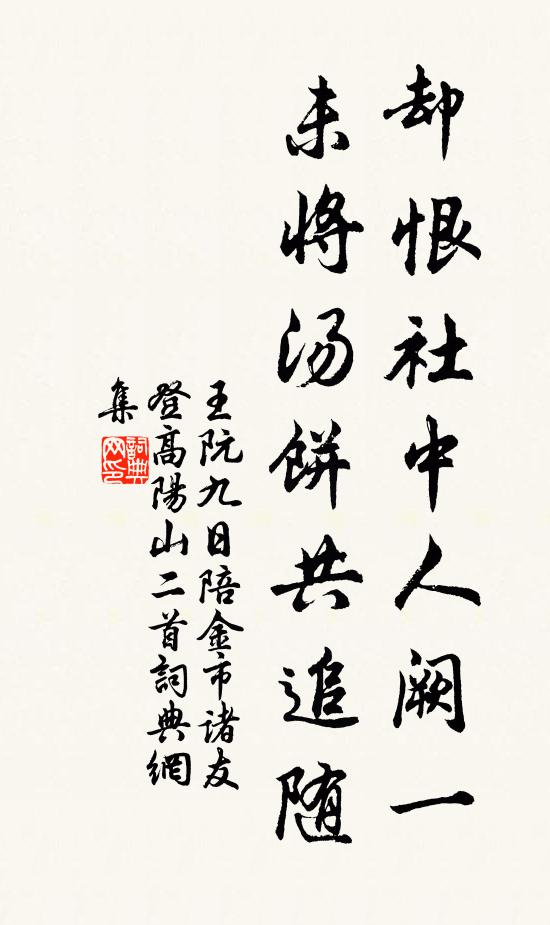 却恨社中人阙一
未将汤饼共追随
王阮九日陪金市诸友
登高陽山二首詞典網
集
詞典網印